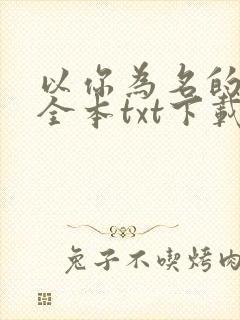 以你為名的
全本txt下載
兔子不喫烤肉